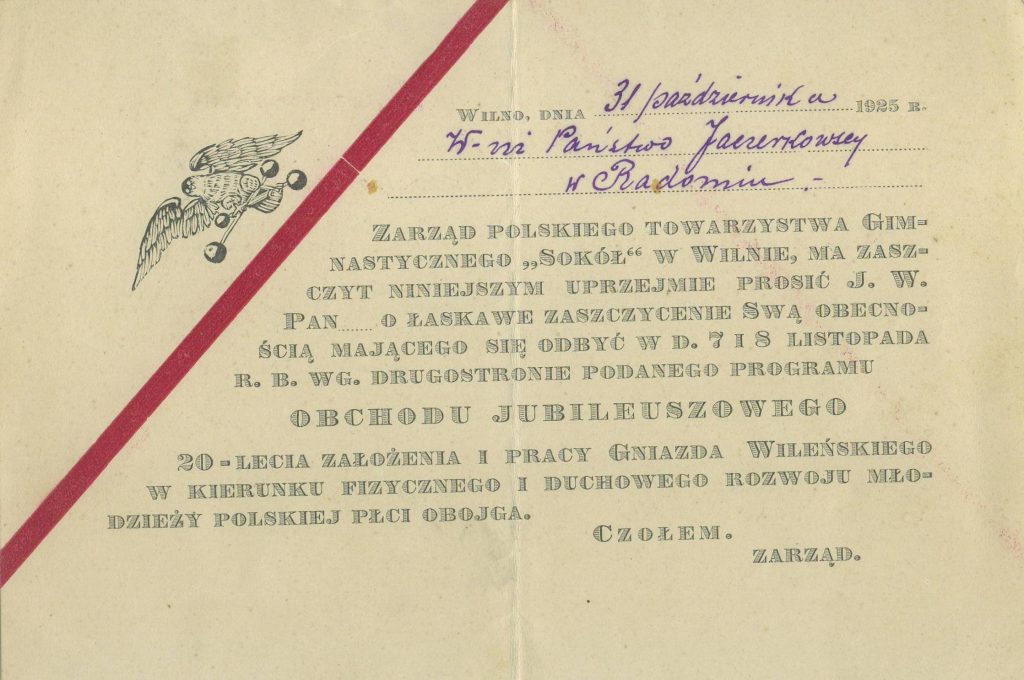 Wilno, dnia 31 października 1925 r.
W-ni Państwo Jaczerkowscy
w Radomiu.-
Zarząd Polskiego Towarzystwa Gim-
nastycznego „Sokół“ w Wilnie, ma zasz-
czyt niniejszym uprzejmie prosić J. W.
Pan...... o łaskawe zaszczycenie Swą obecno-
ścią mającego się odbyć w d. 7 i 8 listopada
r. b. wg. drugostronie podanego programu
OBCHODU JUBILEUSZOWEGO
20-lecia założenia i pracy Gniazda Wileńskiego
w kierunku fizycznego i duchowego rozwoju mło-
dzieży polskiej płci obojga.
Czołem.
Zarząd.